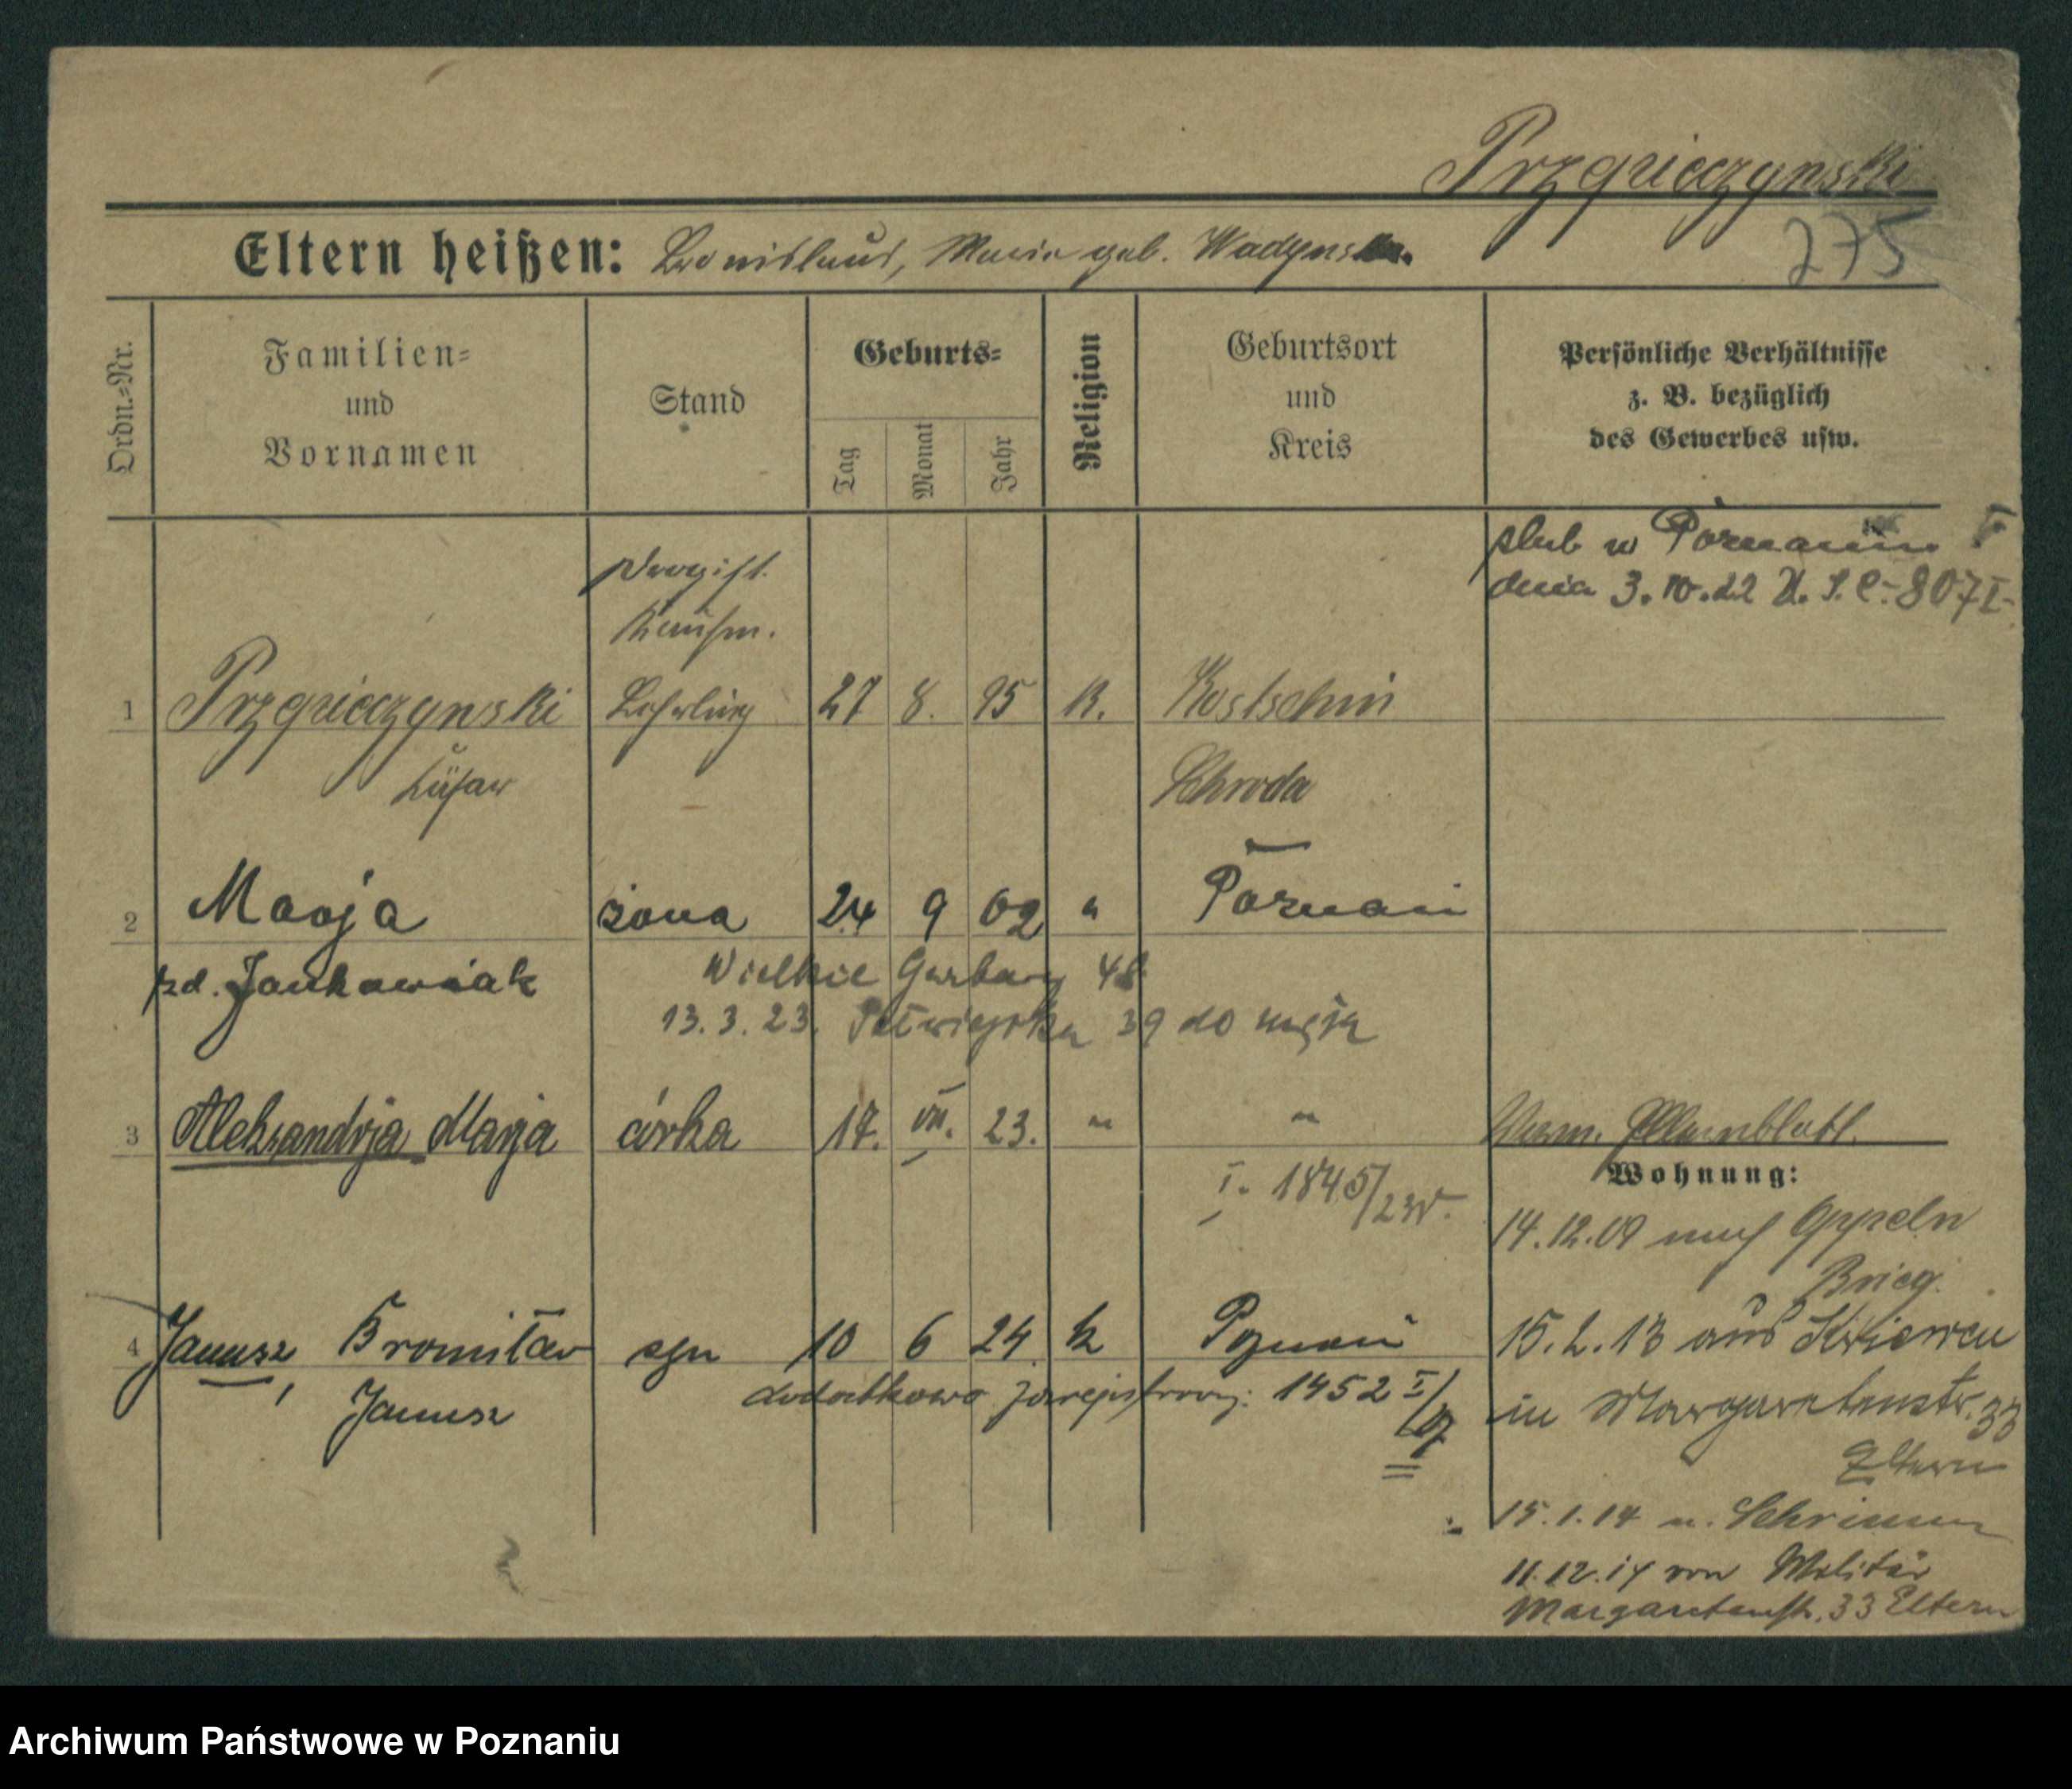 Przywieczynski
275
Eltern heißen: Bronislaus, Maria geb. Wadynska.
Ordn.=Nr.
Familien=
und
Vornamen
Stand
Geburts=
Tag
Monat
Jahr
Religion
Geburtsort
und
Kreis
Persönliche Verhältnisse
z. B. bezüglich
des Gewerbes usw.
ślub w Poznaniu I
dnia 3.10.22 U. S. C. 807 I
Drogist.
Kaufm.
1 Lehrling 27 8. 95 K. Kostschin
Schroda
2 Marja żona 24 9 02 " Poznań
zd. Jankowiak
Wielkie Garbary 48
13.3.23. 39 do męża
3 Aleksandrja Marja córka 17. VII. 23. " "
I. 1845/23
Wohnung:
14.12.09 nach Oppeln
Brieg.
4 Janusz, Bronisław syn 10 6 24 k Poznań
Janusz
dodatkowo zarejestrow: 1452 I/
15.2.13 aus
in Margaretenstr. 33
Eltern
15.1.14 n. Schrimm
11.12.14 von Militär
Margaretenstr. 33 Eltern
Archiwum Państwowe w Poznaniu